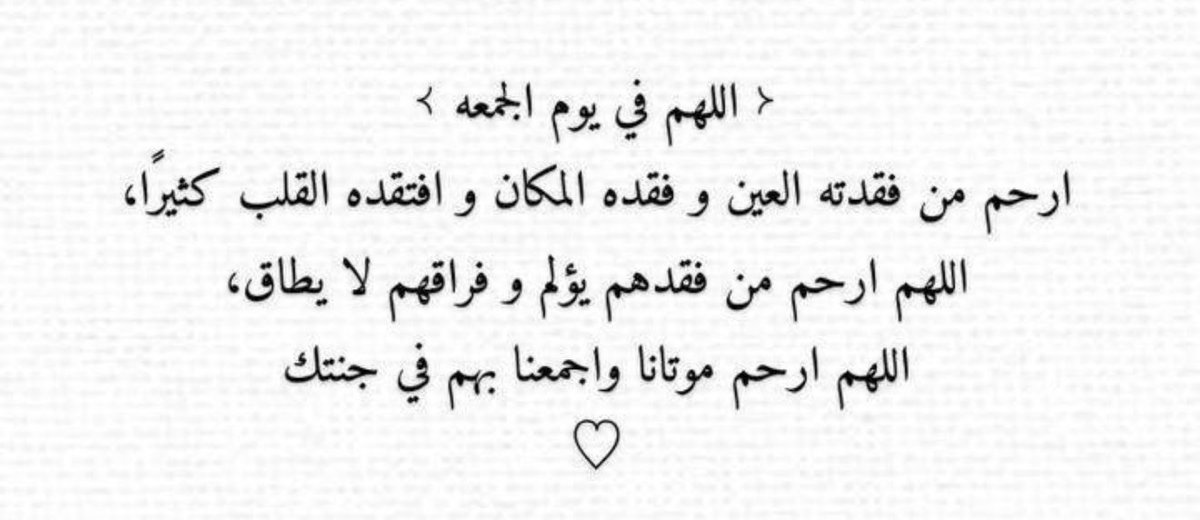 ﴿ اللهم في يوم الجمعه ﴾
ارحم من فقدته العين و فقده المكان و افتقده القلب كثيرًا،
اللهم ارحم من فقدهم يؤلم و فراقهم لا يطاق،
اللهم ارحم موتانا واجمعنا بهم في جنتك
♡